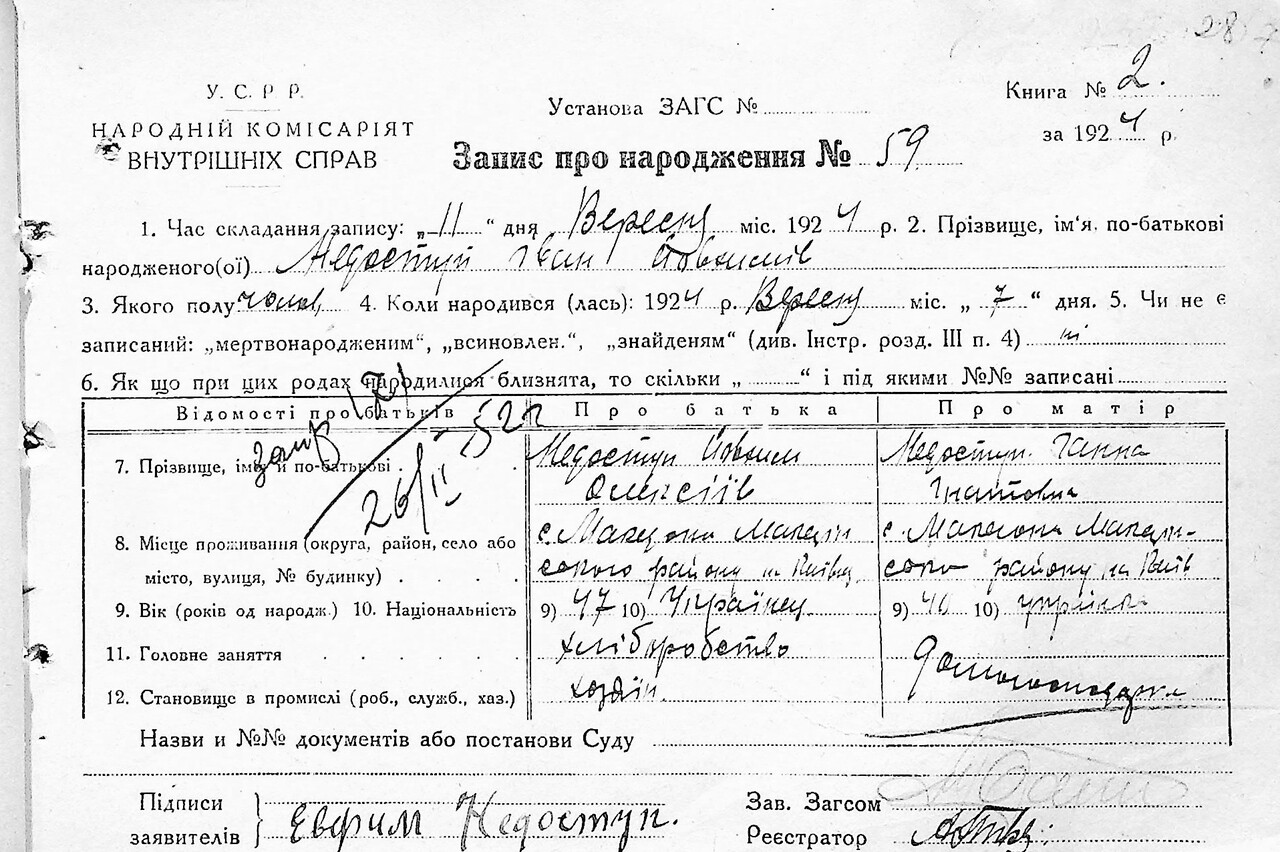 У. С. Р. Р.
НАРОДНІЙ КОМІСАРІЯТ
ВНУТРІШНІХ СПРАВ
Установа ЗАГС №
Книга № 2.
за 1924 р.
Запис про народження № 59
1. Час складання запису: „11“ дня Вересня міс. 1924 р. 2. Прізвище, ім‘я, по-батькові
народженого(ої) Недоступ Іван Йовхимів
3. Якого полу чолов, 4. Коли народився (лась): 1924 р. Вересня міс. „ 7 “ дня. 5. Чи не є
записаний: „мертвонародженим“, „всиновлен.“, „знайденям“ (див. Інстр. розд. III п. 4) ні
6. Як що при цих родах народилися близнята, то скільки „ “ і під якими №№ записані
Відомості про батьків Про батька Про матір
26/II 52р
7. Прізвище, ім‘я й по-батькові Недоступ Йовхим Недоступ Ганна
Олексіїв Гнатовна
8. Місце проживання (округа, район, село або с. Македони Македон с. Македони Македон-
місто, вулиця, № будинку) ского району на Київщ ского району на Київ
9. Вік (років од народж.) 10. Національність 9) 47 10) Українец 9) 40 10) україн
11. Головне заняття хліборобство домогосподарка
12. Становище в промислі (роб., служб., хаз.) хозяїн
Назви и №№ документів або постанови Суду
Підписи
заявителів
Евфим Недоступ.
Зав. Загсом
Реєстратор